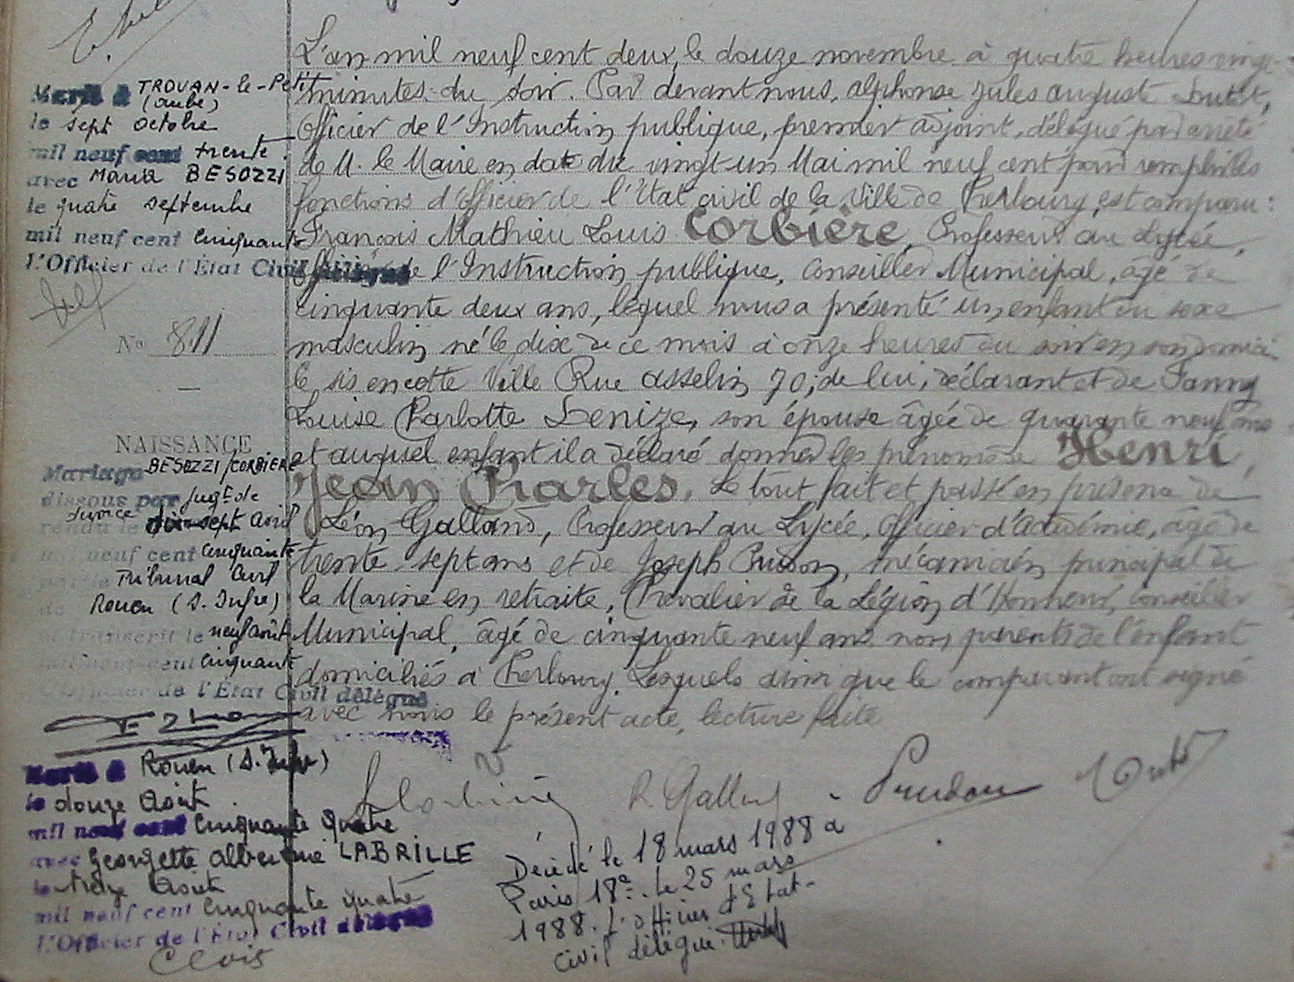 Marié à TROUAN-le-Petit
(Aube)
le sept octobre
mil neuf cent trente
avec Maria BESOZZI
le quatre septembre
mil neuf cent cinquante
L'Officier de l'État Civil délégué
No 811
NAISSANCE
Mariage BESOZZI/CORBIERE
dissous par jugt de
divorce
rendu le dix-sept avril
mil neuf cent cinquante
Tribunal Civil
de Rouen (S. Infre)
et transcrit le neuf août
mil neuf cent cinquante
L'Officier de l'État Civil délégué
Marié à Rouen (S. Infre)
le douze Août
mil neuf cent cinquante quatre
avec Georgette Albertine LABRILLE
le treize Août
mil neuf cent cinquante quatre
L'Officier de l'État Civil délégué
L'an mil neuf cent deux, le douze novembre à quatre heures vingt
minutes du soir. Par devant nous, Alphonse Jules Auguste
Officier de l'Instruction publique, premier adjoint, délégué par arrêté
de M. le Maire en date du vingt-un Mai mil neuf cent pour remplir les
fonctions d'Officier de l'Etat civil de la Ville de Cherbourg, est comparu :
François Mathieu Louis Corbière, Professeur au Lycée,
Officier de l'Instruction publique, Conseiller Municipal, âgé de
cinquante deux ans, lequel nous a présenté un enfant du sexe
masculin né le dix de ce mois à onze heures du soir en son domici
le, sis en cette Ville Rue Asselin 70, de lui, déclarant et de Fanny
Louise Charlotte Denize, son épouse âgée de quarante neuf ans
et auquel enfant il a déclaré donner les prénoms de Henri,
Jean Charles. Le tout fait et passé en présence de
Léon Galland, Professeur au Lycée, Officier d'Académie, âgé de
trente-sept ans et de Joseph Prudon, mécanicien principal de
la Marine en retraite, Chevalier de la Légion d'Honneur, Conseiller
Municipal, âgé de cinquante neuf ans, non parents de l'enfant
domiciliés à Cherbourg. Lesquels ainsi que le comparant ont signé
avec nous le présent acte, lecture faite
L Corbière R Galland Prudon
Décédé le 18 mars 1988 à
Paris 18e. Le 25 mars
1988. L'officier d'Etat-
civil délégué.